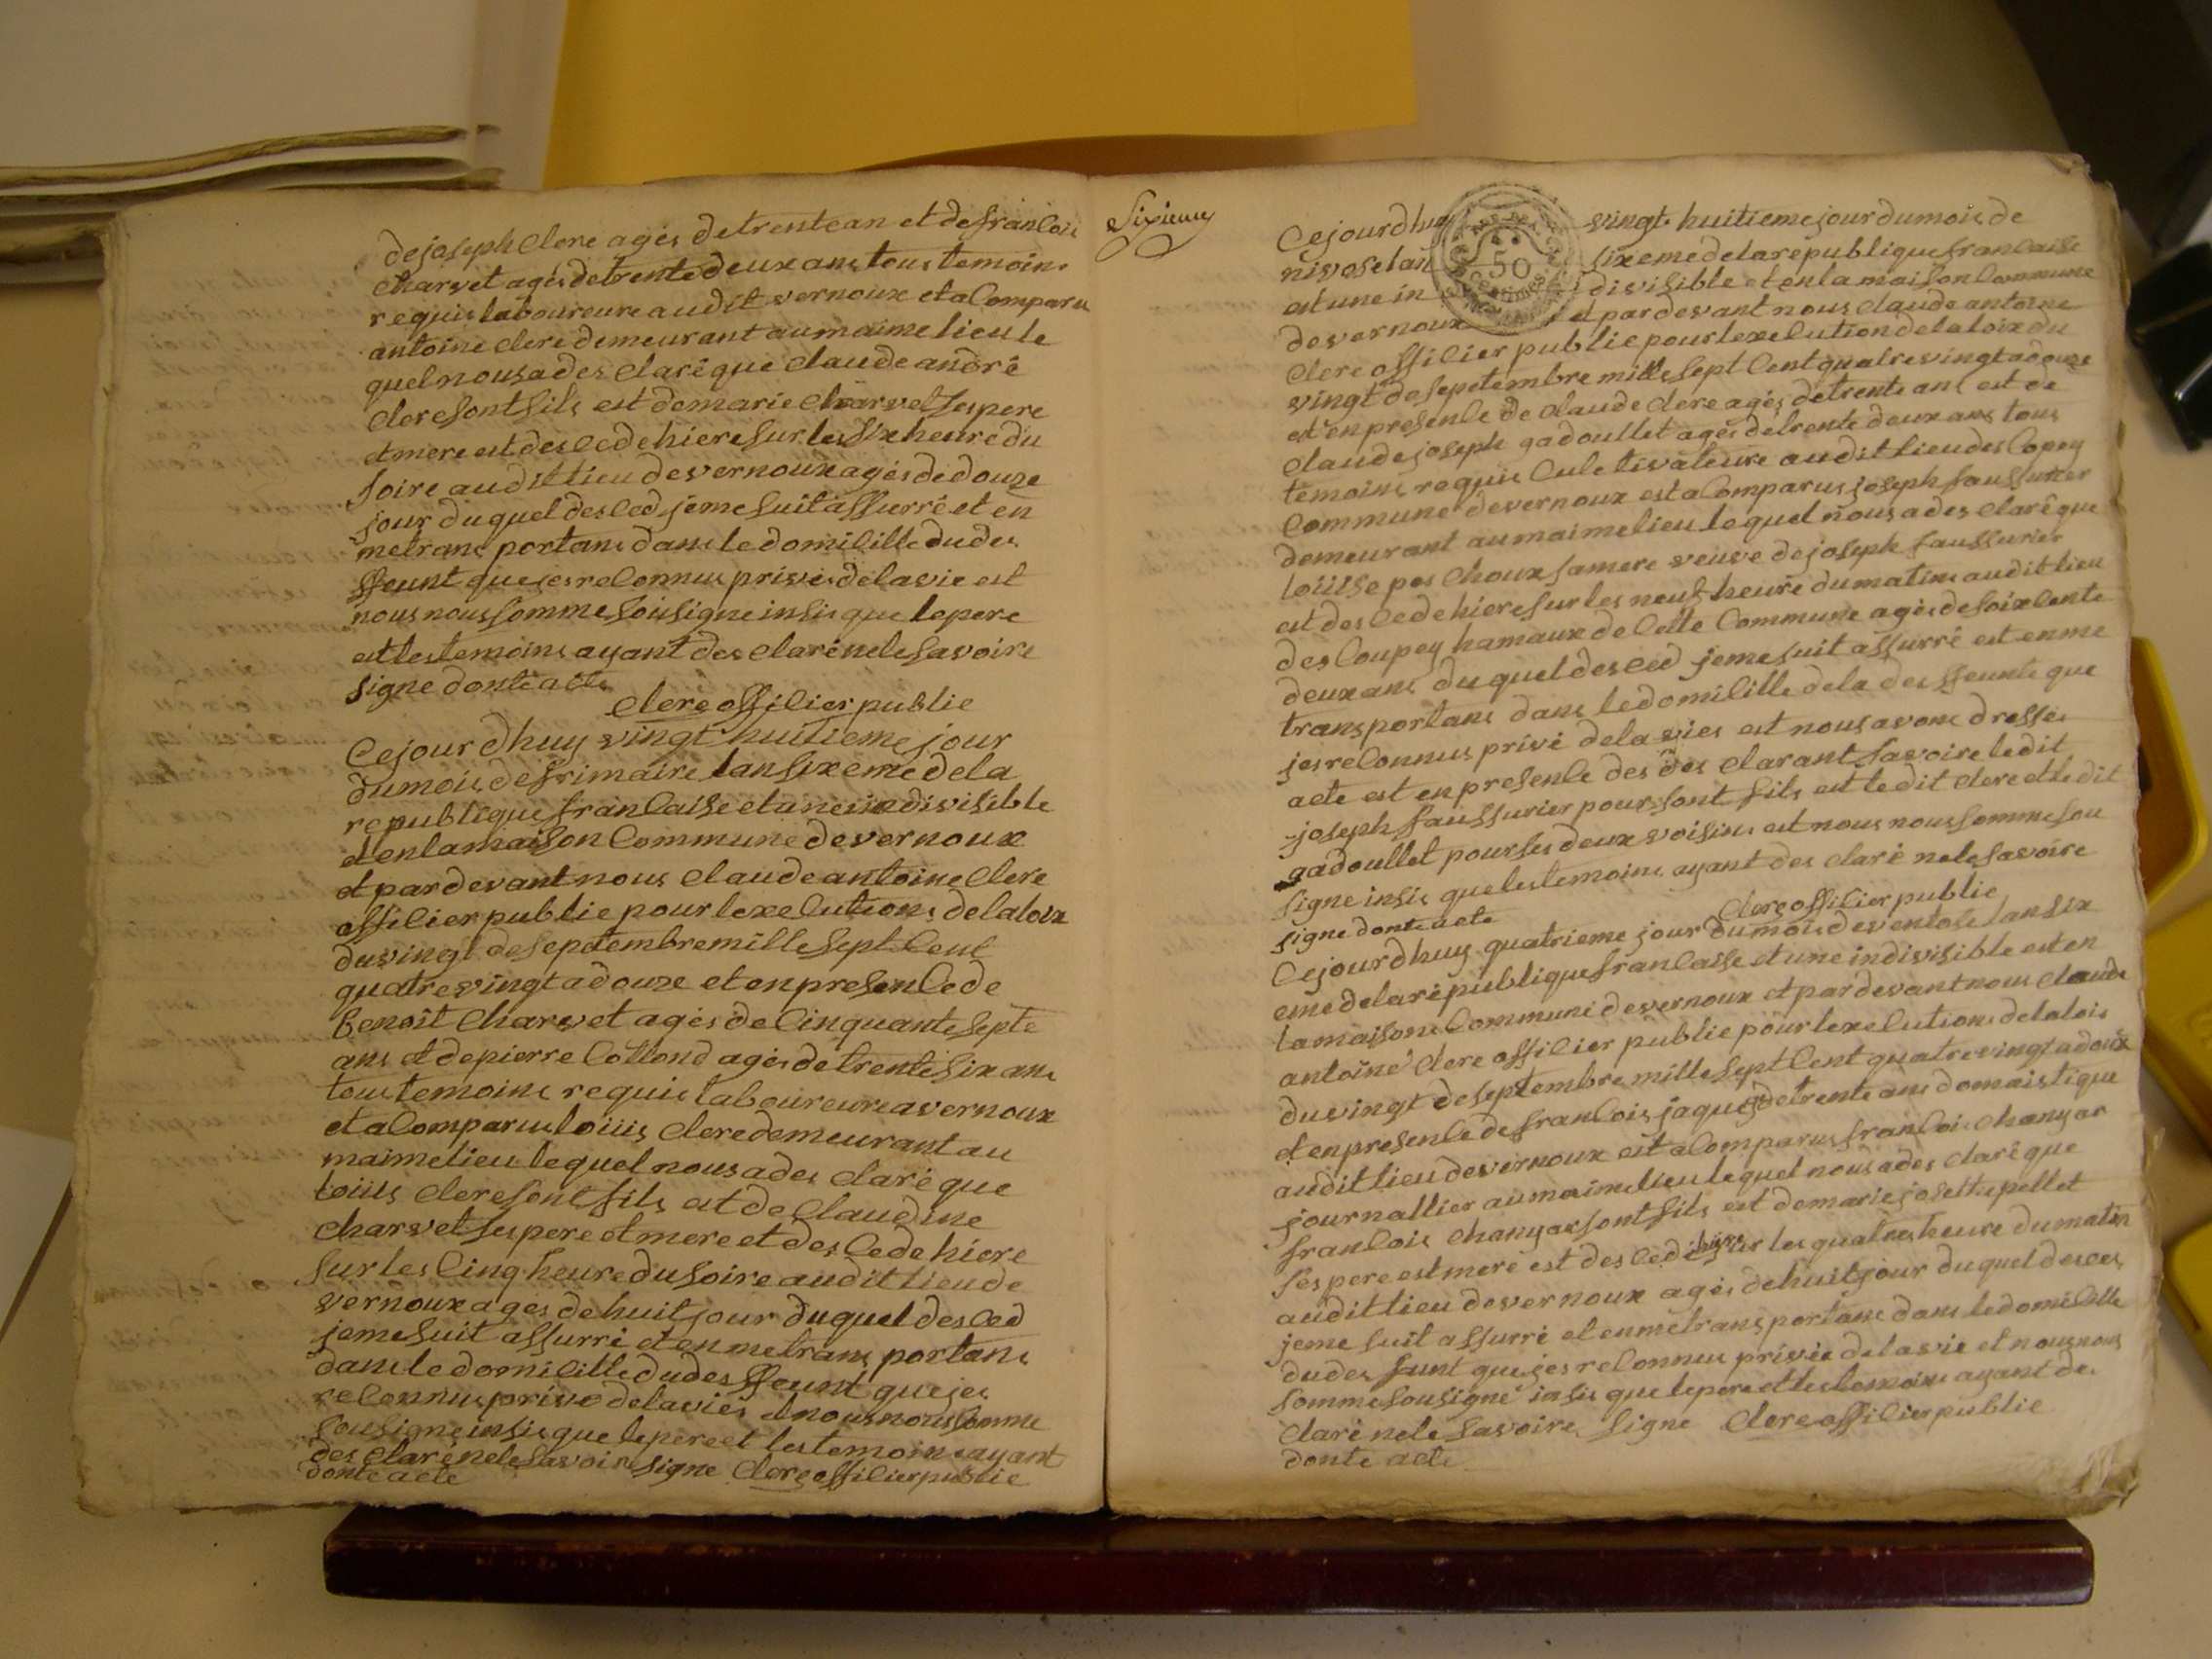 de joseph Clerc agés de trente an et de francois
charvet agés de trente deux ans tous temoins
requis laboureure audit vernoux et a Comparu
antoine clerc demeurant au maime lieu le
quel nous a des claré que claude andré
clerc sont fils est de marie charvet ses pere
et mere est des cede hiere sur les six heure du
soire audit lieu de vernoux agés de douze
jour du quel des ced je me suit assurré et en
me trans portans dans le domicille du des
ffeunt que jes reconnus privés de la vie est
nous nous somme sousigne insis que le pere
est les temoins ayant des claré ne le savoire
signe donte acte
Clerc officier public
Ce jour dhuy vingt huitieme jour
du mois de frimaire lan sixeme de la
republique francaise et une indivisible
et en la maison Commune de vernoux
et par devant nous claude antoine Clerc
officier public pour lexecutions de la loix
du vingt de septembre mille sept Cent
quatre vingt a douze et en presence de
benoit Charvet agés de Cinquante septe
ans et de pierre Cottond agés de trente six ans
tous temoins requis laboureure a vernoux
et a Comparus loüis clerc demeurant au
maime lieu le quel nous a des claré que
loüis clerc sont fils est de Claudine
charvet ses pere et mere et des cede hiere
sur les Cinq heure du soire audit lieu de
vernoux agés de huit jour du quel des ced
je me suit assurré et en me trans portans
dans le domicille du des ffeunt que jes
reconnus privé de la vies et nous nous somme
sousigne insis que le pere et les temoins ayant
des claré ne le savoire signe Clerc officier public
donte acte
Sixieme
Ce jour dhuy vingt huitieme jour du mois de
nivose lan sixeme de la republique francaise
50
est une in divisible et en la maison Commune
de vernoux et par devant nous claude antoine
clerc officier public pour lexecution de la loix du
vingt de septembre mille sept Cent quatre vingt a douze
est en presence de claude clerc agés de trente ans est de
claude joseph gadoullet agés de trente deux ans tous
temoins requis Culetivateure audit lieu des Copey
Commune de vernoux est a Comparus joseph faussurier
demeurant au maime lieu le quel nous a des claré que
loüise pos choux sa mere veuve de joseph faussurier
est des cede hiere sur les neuf heure du matins audit lieu
des Coupey hamaux de Cette Commune agés de soixcente
deux ans du quel des ced je me suit assurré est en me
trans portans dans le domicille de la des ffeunte que
jes reconnus privé de la vies est nous avons dresses
acte est en presence des des clarant savoire ledit
joseph faussurier pour sont fils est ledit clerc et ledit
gadoullet pour ses deux voisins est nous nous somme sou
signe insis que les temoins ayant des claré ne le savoire
signe donte acte Clerc officier public
Ce jour dhuy quatrieme jour du mois de ventose lan six
eme de la republique francaise et une indivisible est en
la maisons Commune de vernoux et par devant nous claude
antoine clerc officier public pour lexecutions de la lois
du vingt de septembre mille sept Cent quatre vingt a doux
et en presence de francois jaques de trente ans domaistique
audit lieu de vernoux est a Comparus francois chanyar
journallier au maime lieu le quel nous a des claré que
francois chanyar sont fils est de marie josette pellet
ses pere est mere est des cede hiere sur les quatres heure du matin
audit lieu de vernoux agés de huit jour du quel des ces
je me suit assurré et en me trans portans dans le domicille
du des funt que jes reconnus privée de la vie et nous nous
somme sousigne insis que le pere et les temoins ayant de
claré ne le savoire signe Clerc officier public
donte acte